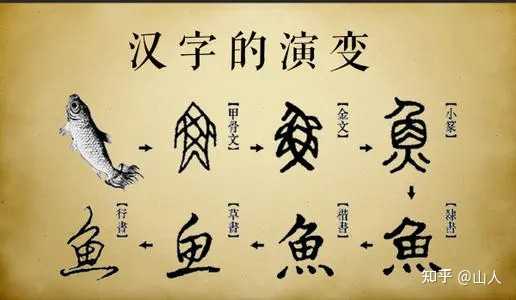 汉字的演变
【甲骨文】
【金文】
【小篆】
【隸書】
魚
【楷書】
魚
【草書】
鱼
【行書】
魚
知乎 @山人